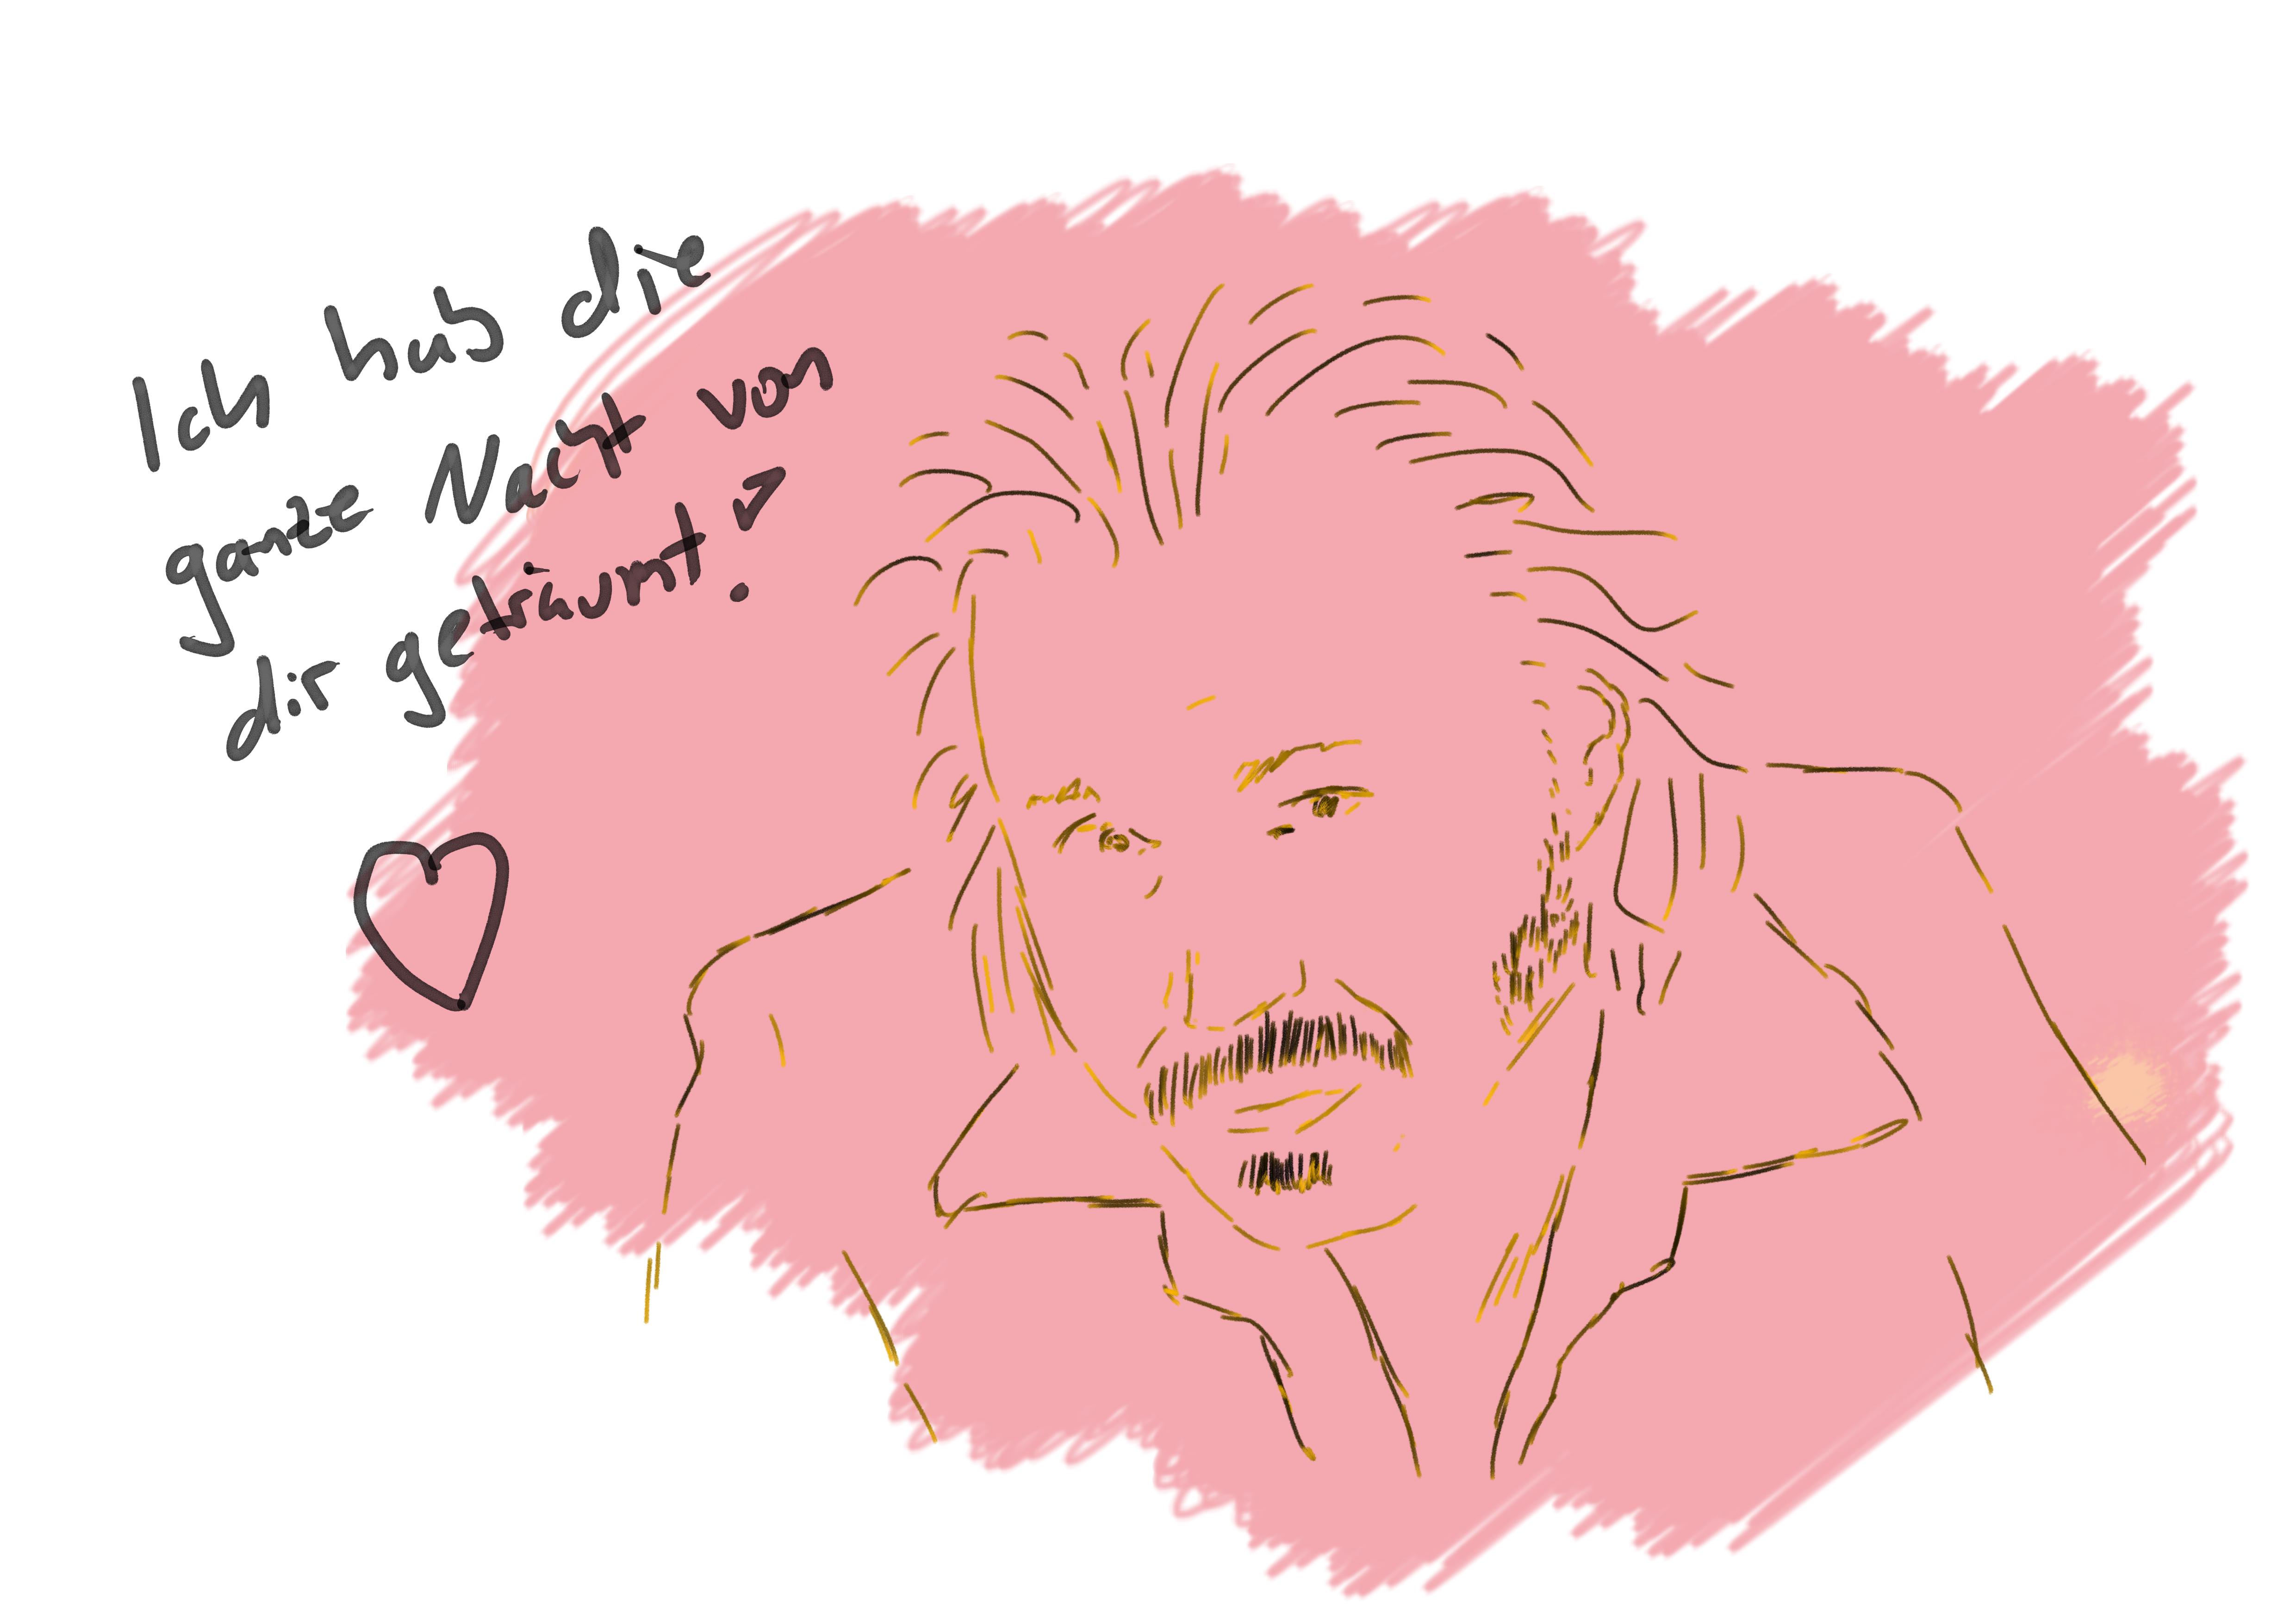 Ich hab die
ganze Nacht von
dir geträumt!